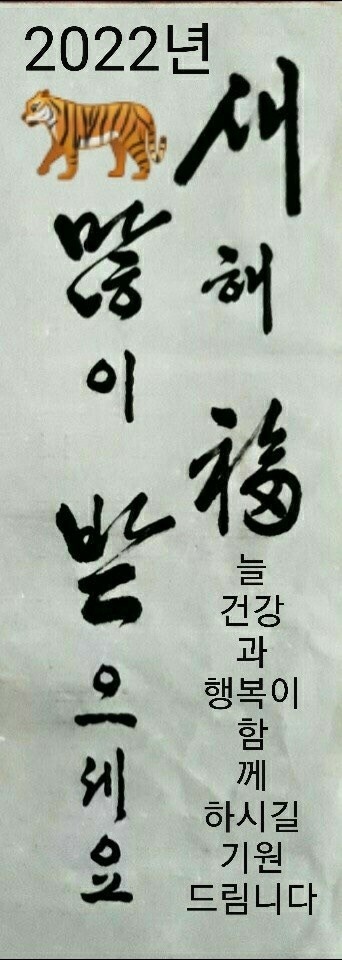 2022년
새
해
福
많
이
받
으
세
요
늘
건강
과
행복이
함
께
하시길
기원
드림니다